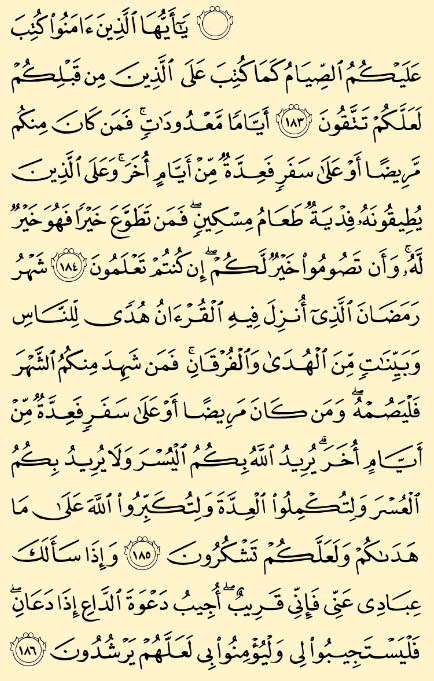 يَٰٓأَيُّهَا ٱلَّذِينَ ءَامَنُوا۟ كُتِبَ
عَلَيْكُمُ ٱلصِّيَامُ كَمَا كُتِبَ عَلَى ٱلَّذِينَ مِن قَبْلِكُمْ
لَعَلَّكُمْ تَتَّقُونَ ١٨٣ أَيَّامًا مَّعْدُودَٰتٍ ۚ فَمَن كَانَ مِنكُم
مَّرِيضًا أَوْ عَلَىٰ سَفَرٍ فَعِدَّةٌ مِّنْ أَيَّامٍ أُخَرَ ۚ وَعَلَى ٱلَّذِينَ
يُطِيقُونَهُۥ فِدْيَةٌ طَعَامُ مِسْكِينٍ ۖ فَمَن تَطَوَّعَ خَيْرًا فَهُوَ خَيْرٌ
لَّهُۥ ۚ وَأَن تَصُومُوا۟ خَيْرٌ لَّكُمْ ۖ إِن كُنتُمْ تَعْلَمُونَ ١٨٤ شَهْرُ
رَمَضَانَ ٱلَّذِىٓ أُنزِلَ فِيهِ ٱلْقُرْءَانُ هُدًى لِّلنَّاسِ
وَبَيِّنَٰتٍ مِّنَ ٱلْهُدَىٰ وَٱلْفُرْقَانِ ۚ فَمَن شَهِدَ مِنكُمُ ٱلشَّهْرَ
فَلْيَصُمْهُ ۖ وَمَن كَانَ مَرِيضًا أَوْ عَلَىٰ سَفَرٍ فَعِدَّةٌ مِّنْ
أَيَّامٍ أُخَرَ ۗ يُرِيدُ ٱللَّهُ بِكُمُ ٱلْيُسْرَ وَلَا يُرِيدُ بِكُمُ
ٱلْعُسْرَ وَلِتُكْمِلُوا۟ ٱلْعِدَّةَ وَلِتُكَبِّرُوا۟ ٱللَّهَ عَلَىٰ مَا
هَدَىٰكُمْ وَلَعَلَّكُمْ تَشْكُرُونَ ١٨٥ وَإِذَا سَأَلَكَ
عِبَادِى عَنِّى فَإِنِّى قَرِيبٌ ۖ أُجِيبُ دَعْوَةَ ٱلدَّاعِ إِذَا دَعَانِ ۖ
فَلْيَسْتَجِيبُوا۟ لِى وَلْيُؤْمِنُوا۟ بِى لَعَلَّهُمْ يَرْشُدُونَ ١٨٦